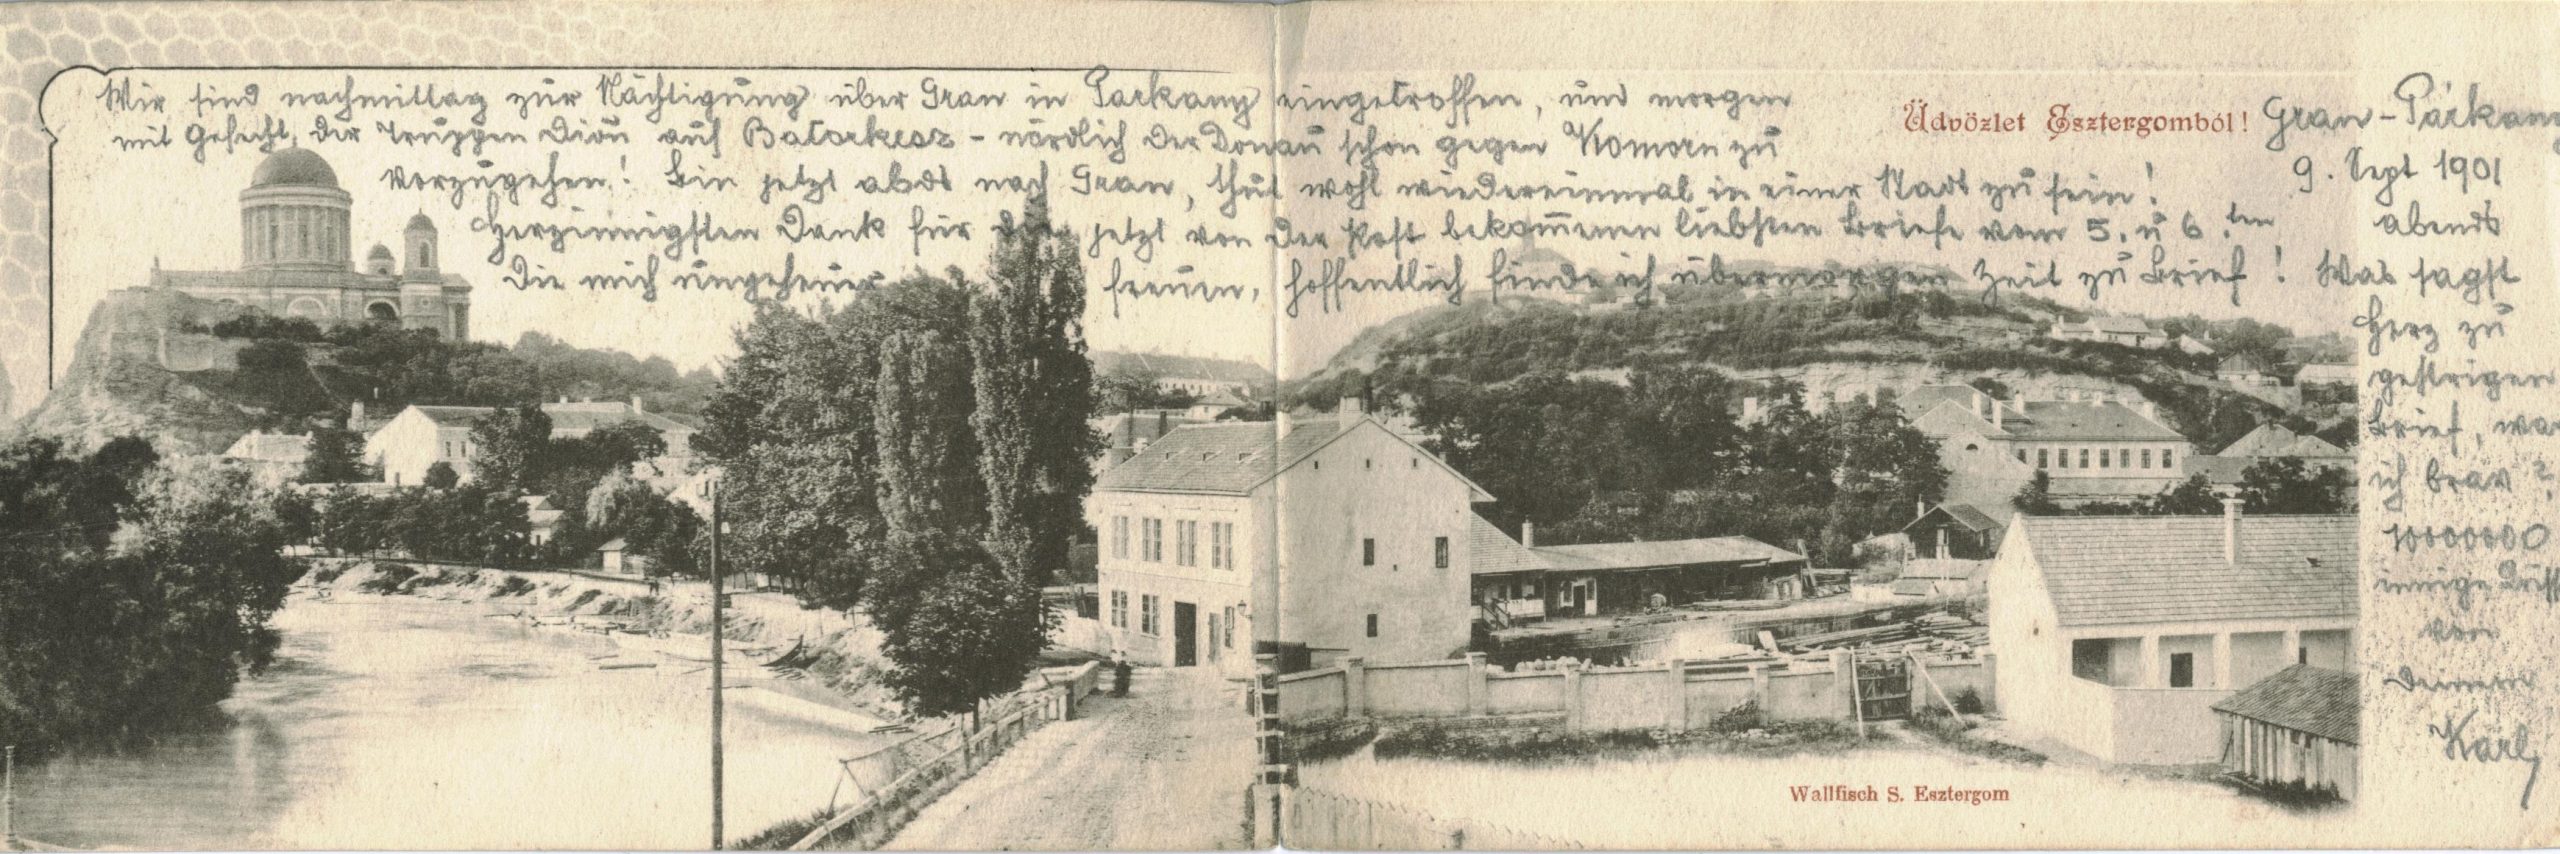 Wir sind nachmittag zur Nächtigung über Gran in Parkany eingetroffen, und morgen
mit Gefecht, der Truppen Divn auf Batorkesz - nördlich der Donau schon gegen Komorn zu
vorzugehen! Bin jetzt abds nach Gran, thut wohl wiedereinmal in einer Stadt zu sein!
Herzinnigsten Dank für die jetzt von der Post bekommenen liebsten Briefe vom 5. u 6.ten
die mich ungeheuer freuen, hoffentlich finde ich übermorgen Zeit zu Brief! Was sagst
Üdvözlet Esztergomból!
Gran-Párkány
9. Sept 1901
abends
Herz zu
gestrigen
Brief, war
ich brav?
10000000
innige
von
Deinem
Karl
Wallfisch S. Esztergom